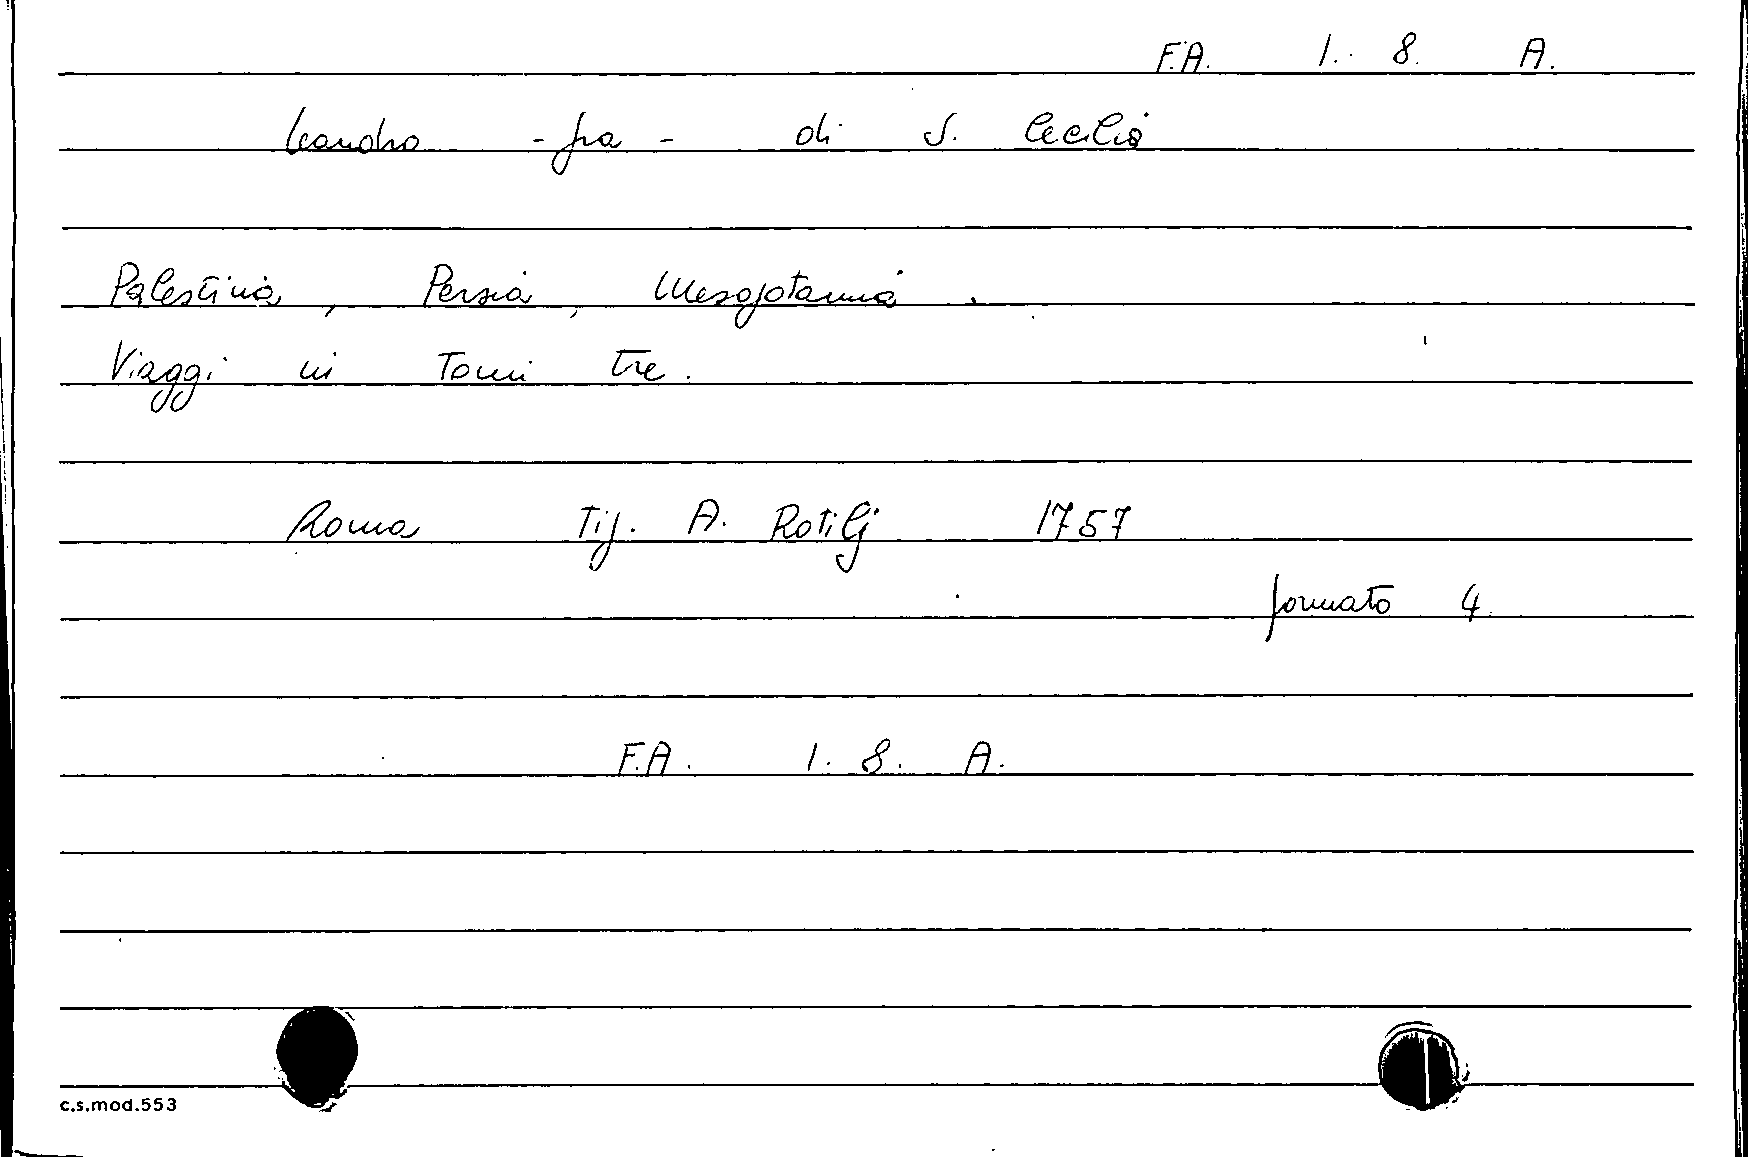 F.A. 1. 8. A.
Leandro - fra - di S. Cecilia
Palestina, Persia, Mesopotamia.
Viaggi in Tomi tre.
Roma Tip. A. Rotilj 1757
formato 4.
F.A. 1. 8. A.
c.s.mod.553